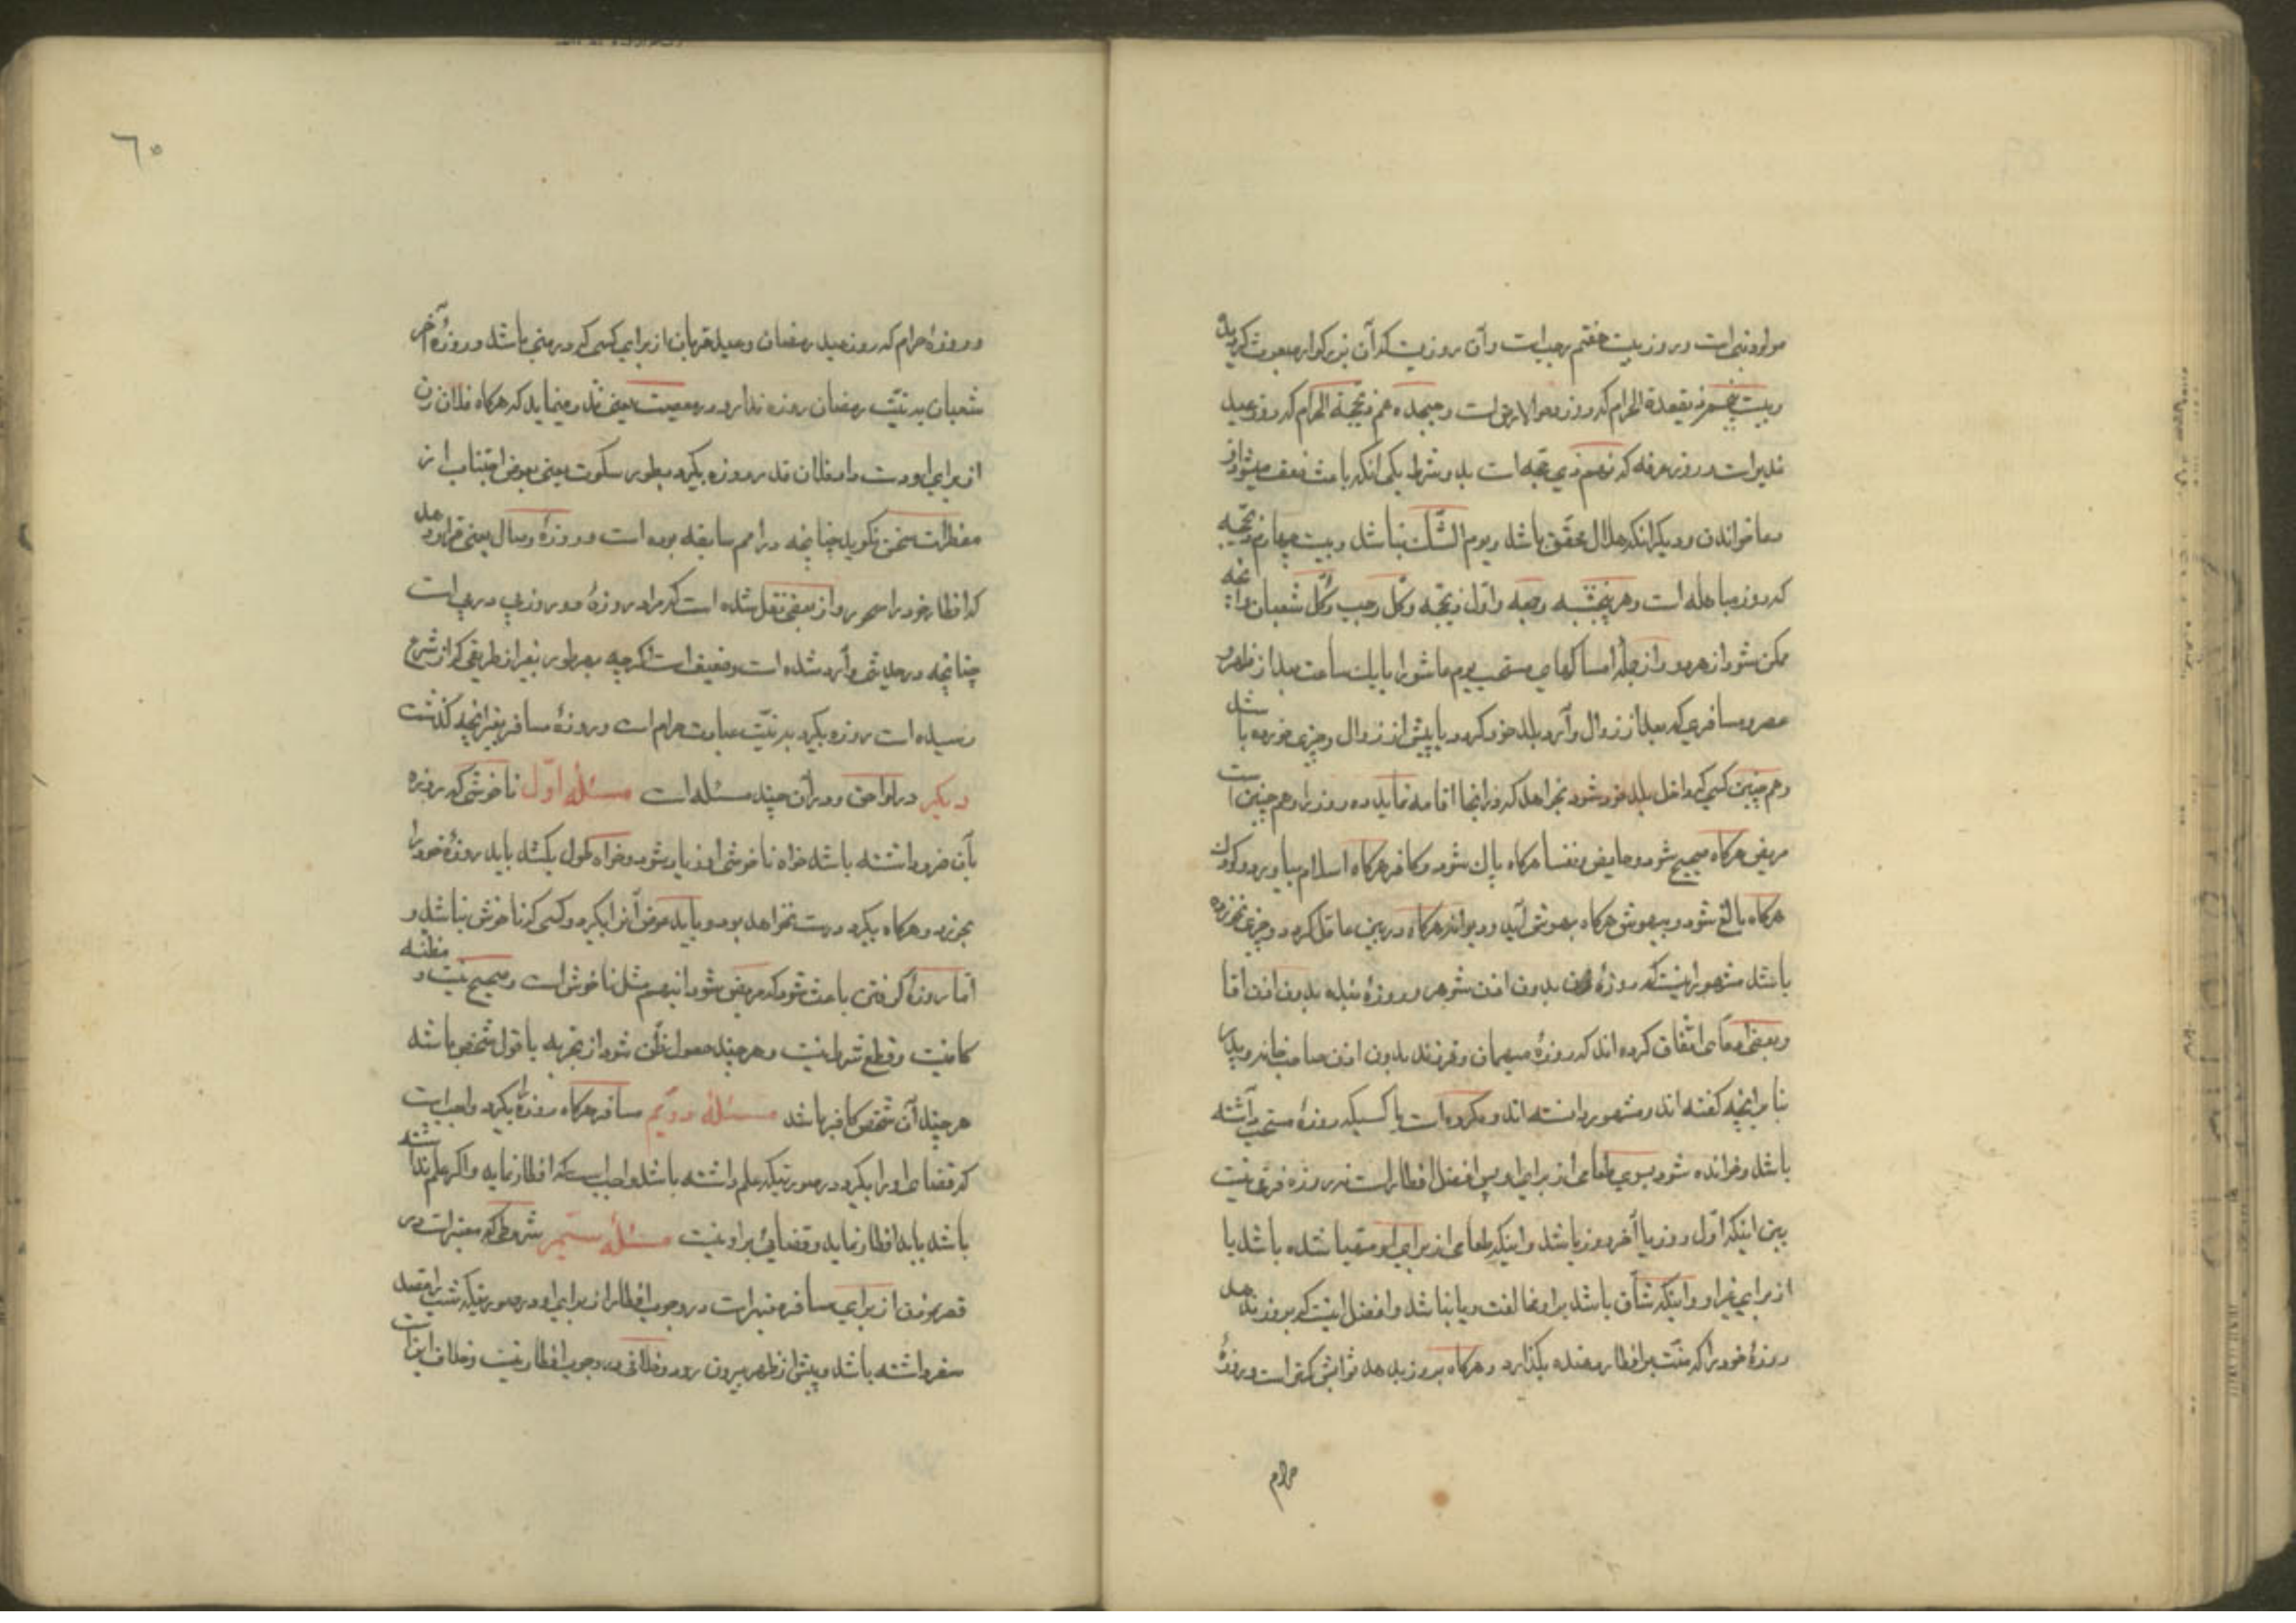 مولود نبی است و روز بیست هفتم رجب است و آن روزیست که آن بزرکوار مبعوث کردیده
و بیست پنجم ذیقعدة الحرام که روز دحو الارض است و هیجدهم ذیحجة الحرام که روز عید
غدیر است و روز عرفه که نهم ذی حجه است بدو شرط یکی انکه باعث ضعف میشود از
دعا خواندن و دیکر انکه هلال محقق باشد و یوم الشک نباشد و بیست چهارم ذیحجه
که روز مباهله است و هر پنجشنبه و جمعه و اول ذیحجه و کل رجب و کل شعبان و آنچه
ممکن شود از هر دو و از جمله امساکهای مستحب یوم عاشورا یا یک ساعت بعد از ظهر و
عصر و مسافری که بعد از زوال وارد بلد خود کردد یا پیش از زوال و چیزی خورده باشد
و هم چنین کسی که داخل بلد خود شود بخواهد که در انجا اقامه نماید ده روز را و هم چنین است
مریض هرکاه صحیح شود و حایض و نفسا هرکاه پاک شود و کافر هرکاه اسلام بیاورد و کودک
هرکاه بالغ شود و بیهوش هرکاه بهوش آید و دیوانه هرکاه در بین عاقل کردد و چیزی نخورده
باشد مشهور اینست که روزهٔ زن بدون اذن شوهر و روزهٔ بنده بدون اذن اقا
و بعضی ادعای اتفاق کرده اند که روزهٔ میهمان و فرزند بدون اذن صاحب خانه و پدر
بنا برانچه کفته اند و مشهور دانسته اند و مکروه است یا کسیکه روزهٔ مستحب داشته
باشد و خوانده شود بسوی طعامی از برای او پس افضل افطار است نه روزه فرقی نیست
بین اینکه اول روز یا آخر روز باشد و اینکه طعامی از برای او مهیا شده باشد یا
از برای غیر او و اینکه شاق باشد بر او مخالفت و یا نباشد و افضل اینست که بروز ندهد
روزهٔ خود را که منت بر افطار دهنده بکذارد و هرکاه بروز بدهد ثوابش کمتر است و روزهٔ
حرام
٦٠
و روزهٔ حرام که روز عید رمضان و عید قربان از برای کسی که در منی باشد و روزهٔ آخر
شعبان به نیت رمضان روزه ندارد و معصیت یعنی نذر مینماید که هرکاه فلان زن
از برای او دست داد فلان قدر روزه بکیرد بطور سکوت یعنی بعوض اجتناب از
مفطرات سخن نکوید چنانچه در امم سابقه بوده است و روزهٔ وصال یعنی قرار دهد
که افطار خود را سحر و از بعضی نقل شده است که مراد روزهٔ دو روز پی در پی است
چنانچه در حدیثی وارد شده است و ضعیف است اکر چه بهر طور بغیر از طریقی که از شرع
رسیده است روزه بکیرد به نیت عبادت حرام است و روزهٔ مسافر بغیر انچه کذشت
دیکر در لواحق و در آن چند مسئله است مسئلهٔ اول ناخوشی که روزه
بآن ضرر داشته باشد خواه ناخوشی او زیاد شود و خواه طول بکشد باید روزهٔ خود را
بخورد و هرکاه بکیرد درست نخواهد بود و باید عوض آنرا بکیرد و کسی که ناخوش نباشد و
اما روزه کرفتن باعث شود که مریض شود انهم مثل ناخوش است و صحیح نیست و مظنه
کافیست و قطع شرط نیست و هر چند حصول ظن شود از تجربه یا قول شخص باشد
هر چند آن شخص کافر باشد مسئلهٔ دویم مسافر هرکاه روزه را بکیرد واجب است
که قضای او را بکیرد در صورتیکه علم داشته باشد واجب است که افطار نماید و اکر علم نداشته
باشد باید افطار نماید و قضائی بر او نیست مسئلهٔ سیم شروطی که معتبر است در
قصر نمودن از برای مسافر معتبر است در وجوب افطار از برای او در صورتیکه شب را قصد
سفر داشته باشد و پیش از ظهر بیرون رود و خلافی در وجوب افطار نیست و خلاف اینست